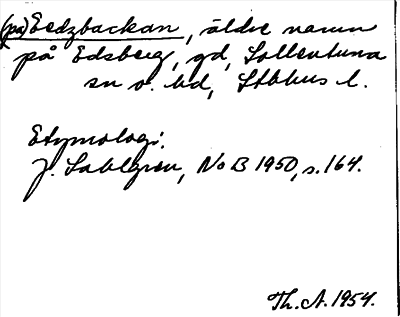 (på) Eedzbackan, äldre namn
på Edsberg, gd, Sollentuna
sn o. hd, Sthlms l.
Etymologi:
J. Sahlgren, NoB 1950, s. 164.
Th. A. 1954.